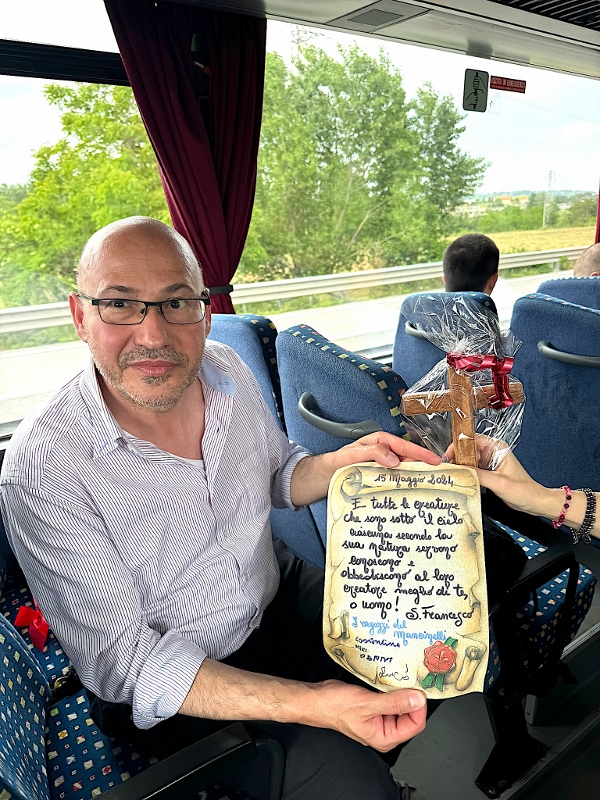 15 Maggio 2024
E tutte le creature
che sono sotto il cielo
ciascuna secondo la
sua natura servono
conoscono e
obbediscono al loro
creatore meglio di te,
o uomo! S. Francesco
I ragazzi del
Mancinelli